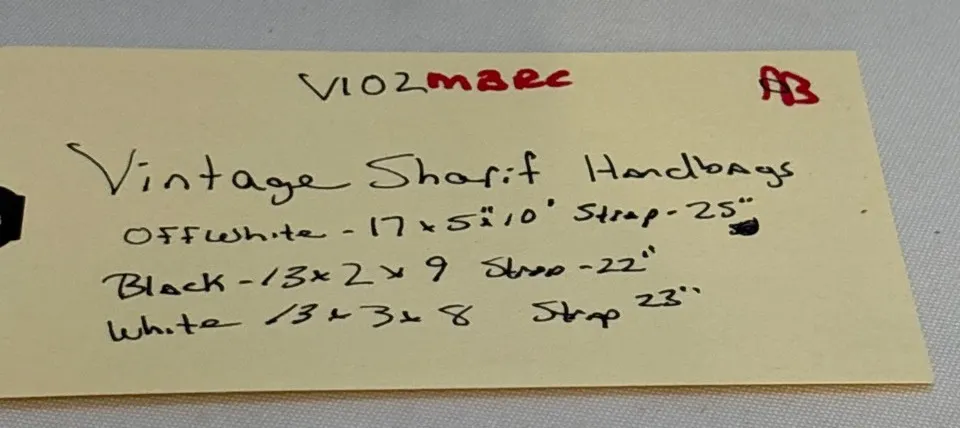 V102MBRC AB
Vintage Sharif Handbags
Offwhite - 17 x 5" x 10' Strap - 25"
Black - 13 x 2 x 9 Strap - 22"
White 13 x 3 x 8 Strap 23"